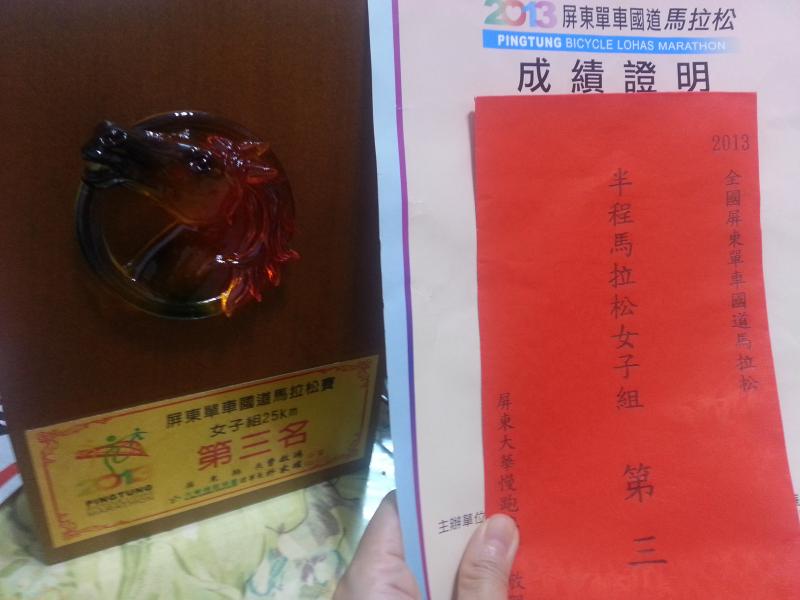 2013 屏東單車國道馬拉松
PINGTUNG BICYCLE LOHAS MARATHON
成績證明
2013
全國屏東單車國道馬拉松
半程馬拉松女子組 第三
屏東大華慢跑
主辦單位
屏東單車國道馬拉松賽
女子組25km
第三名
2013
PINGTUNG
MARATHON